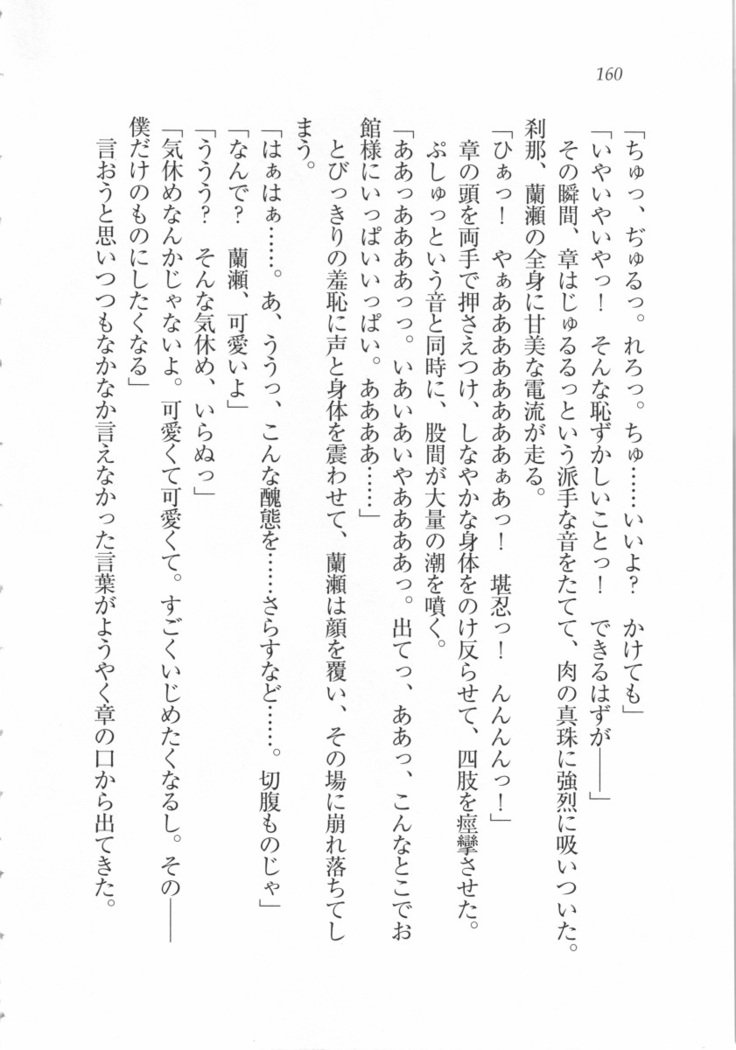 160
「ちゅっ、ぢゅるっ。れろっ。ちゅ……いいよ？　かけても」
「いやいやいやっ！　そんな恥ずかしいことっ！　できるはずが――」
その瞬間、章はじゅるるっという派手な音をたてて、肉の真珠に強烈に吸いついた。
刹那、蘭瀬の全身に甘美な電流が走る。
「ひぁっ！　やぁあああああああぁあっ！　堪忍っ！　んんんんっ！」
章の頭を両手で押さえつけ、しなやかな身体をのけ反らせて、四肢を痙攣させた。
ぷしゅっという音と同時に、股間が大量の潮を噴く。
「ああっああああっっ。いあいあいやああああっ。出てっ、ああっ、こんなとこでお
館様にいっぱいいっぱい。ああああ……」
とびっきりの羞恥に声と身体を震わせて、蘭瀬は顔を覆い、その場に崩れ落ちてし
まう。
「はぁはぁ……。あ、ううっ、こんな醜態を……さらすなど……。切腹ものじゃ」
「なんで？　蘭瀬、可愛いよ」
「ううう？　そんな気休め、いらぬっ」
「気休めなんかじゃないよ。可愛くて可愛くて。すごくいじめたくなるし。その――
僕だけのものにしたくなる」
言おうと思いつつもなかなか言えなかった言葉がようやく章の口から出てきた。